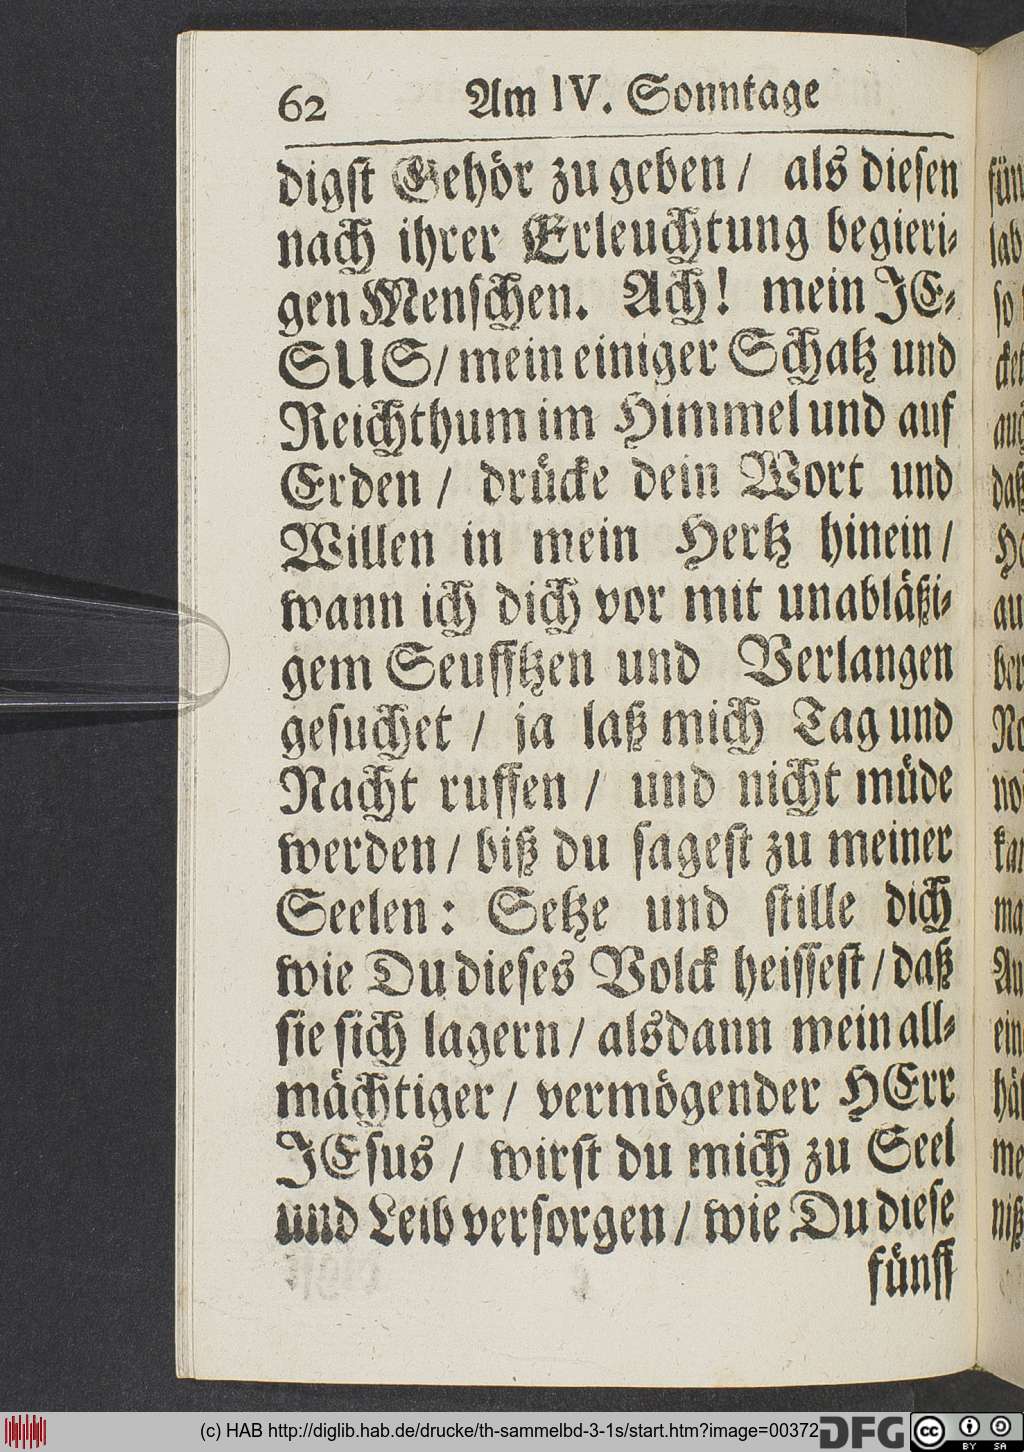 62 Am IV. Sonntage
digst Gehör zu geben / als diesen
nach ihrer Erleuchtung begieri-
gen Menschen. Ach! mein JE-
SUS / mein einiger Schatz und
Reichthum im Himmel und auf
Erden / drücke dein Wort und
Willen in mein Hertz hinein /
wann ich dich vor mit unabläßi-
gem Seufftzen und Verlangen
gesuchet / ja laß mich Tag und
Nacht ruffen / und nicht müde
werden / biß du sagest zu meiner
Seelen: Setze und stille dich
wie Du dieses Volck heissest / daß
sie sich lagern / alsdann mein all-
mächtiger / vermögender HErr
JEsus / wirst du mich zu Seel
und Leib versorgen / wie Du diese
fünff
(c) HAB http://diglib.hab.de/drucke/th-sammelbd-3-1s/start.htm?image=00372
DFG
cc BY SA